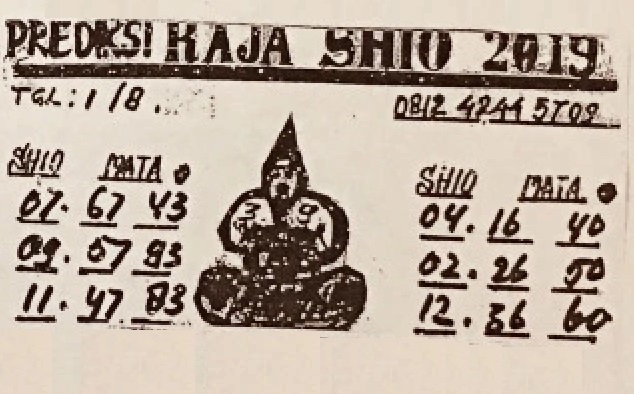 PREDIKSI RAJA SHIO 2019
TGL: 1/8.
0812 4244 5709
SHIO MATA
07. 67 43
09. 57 93
11. 47 83
3 9
SHIO MATA
04. 16 40
02. 26 50
12. 36 60